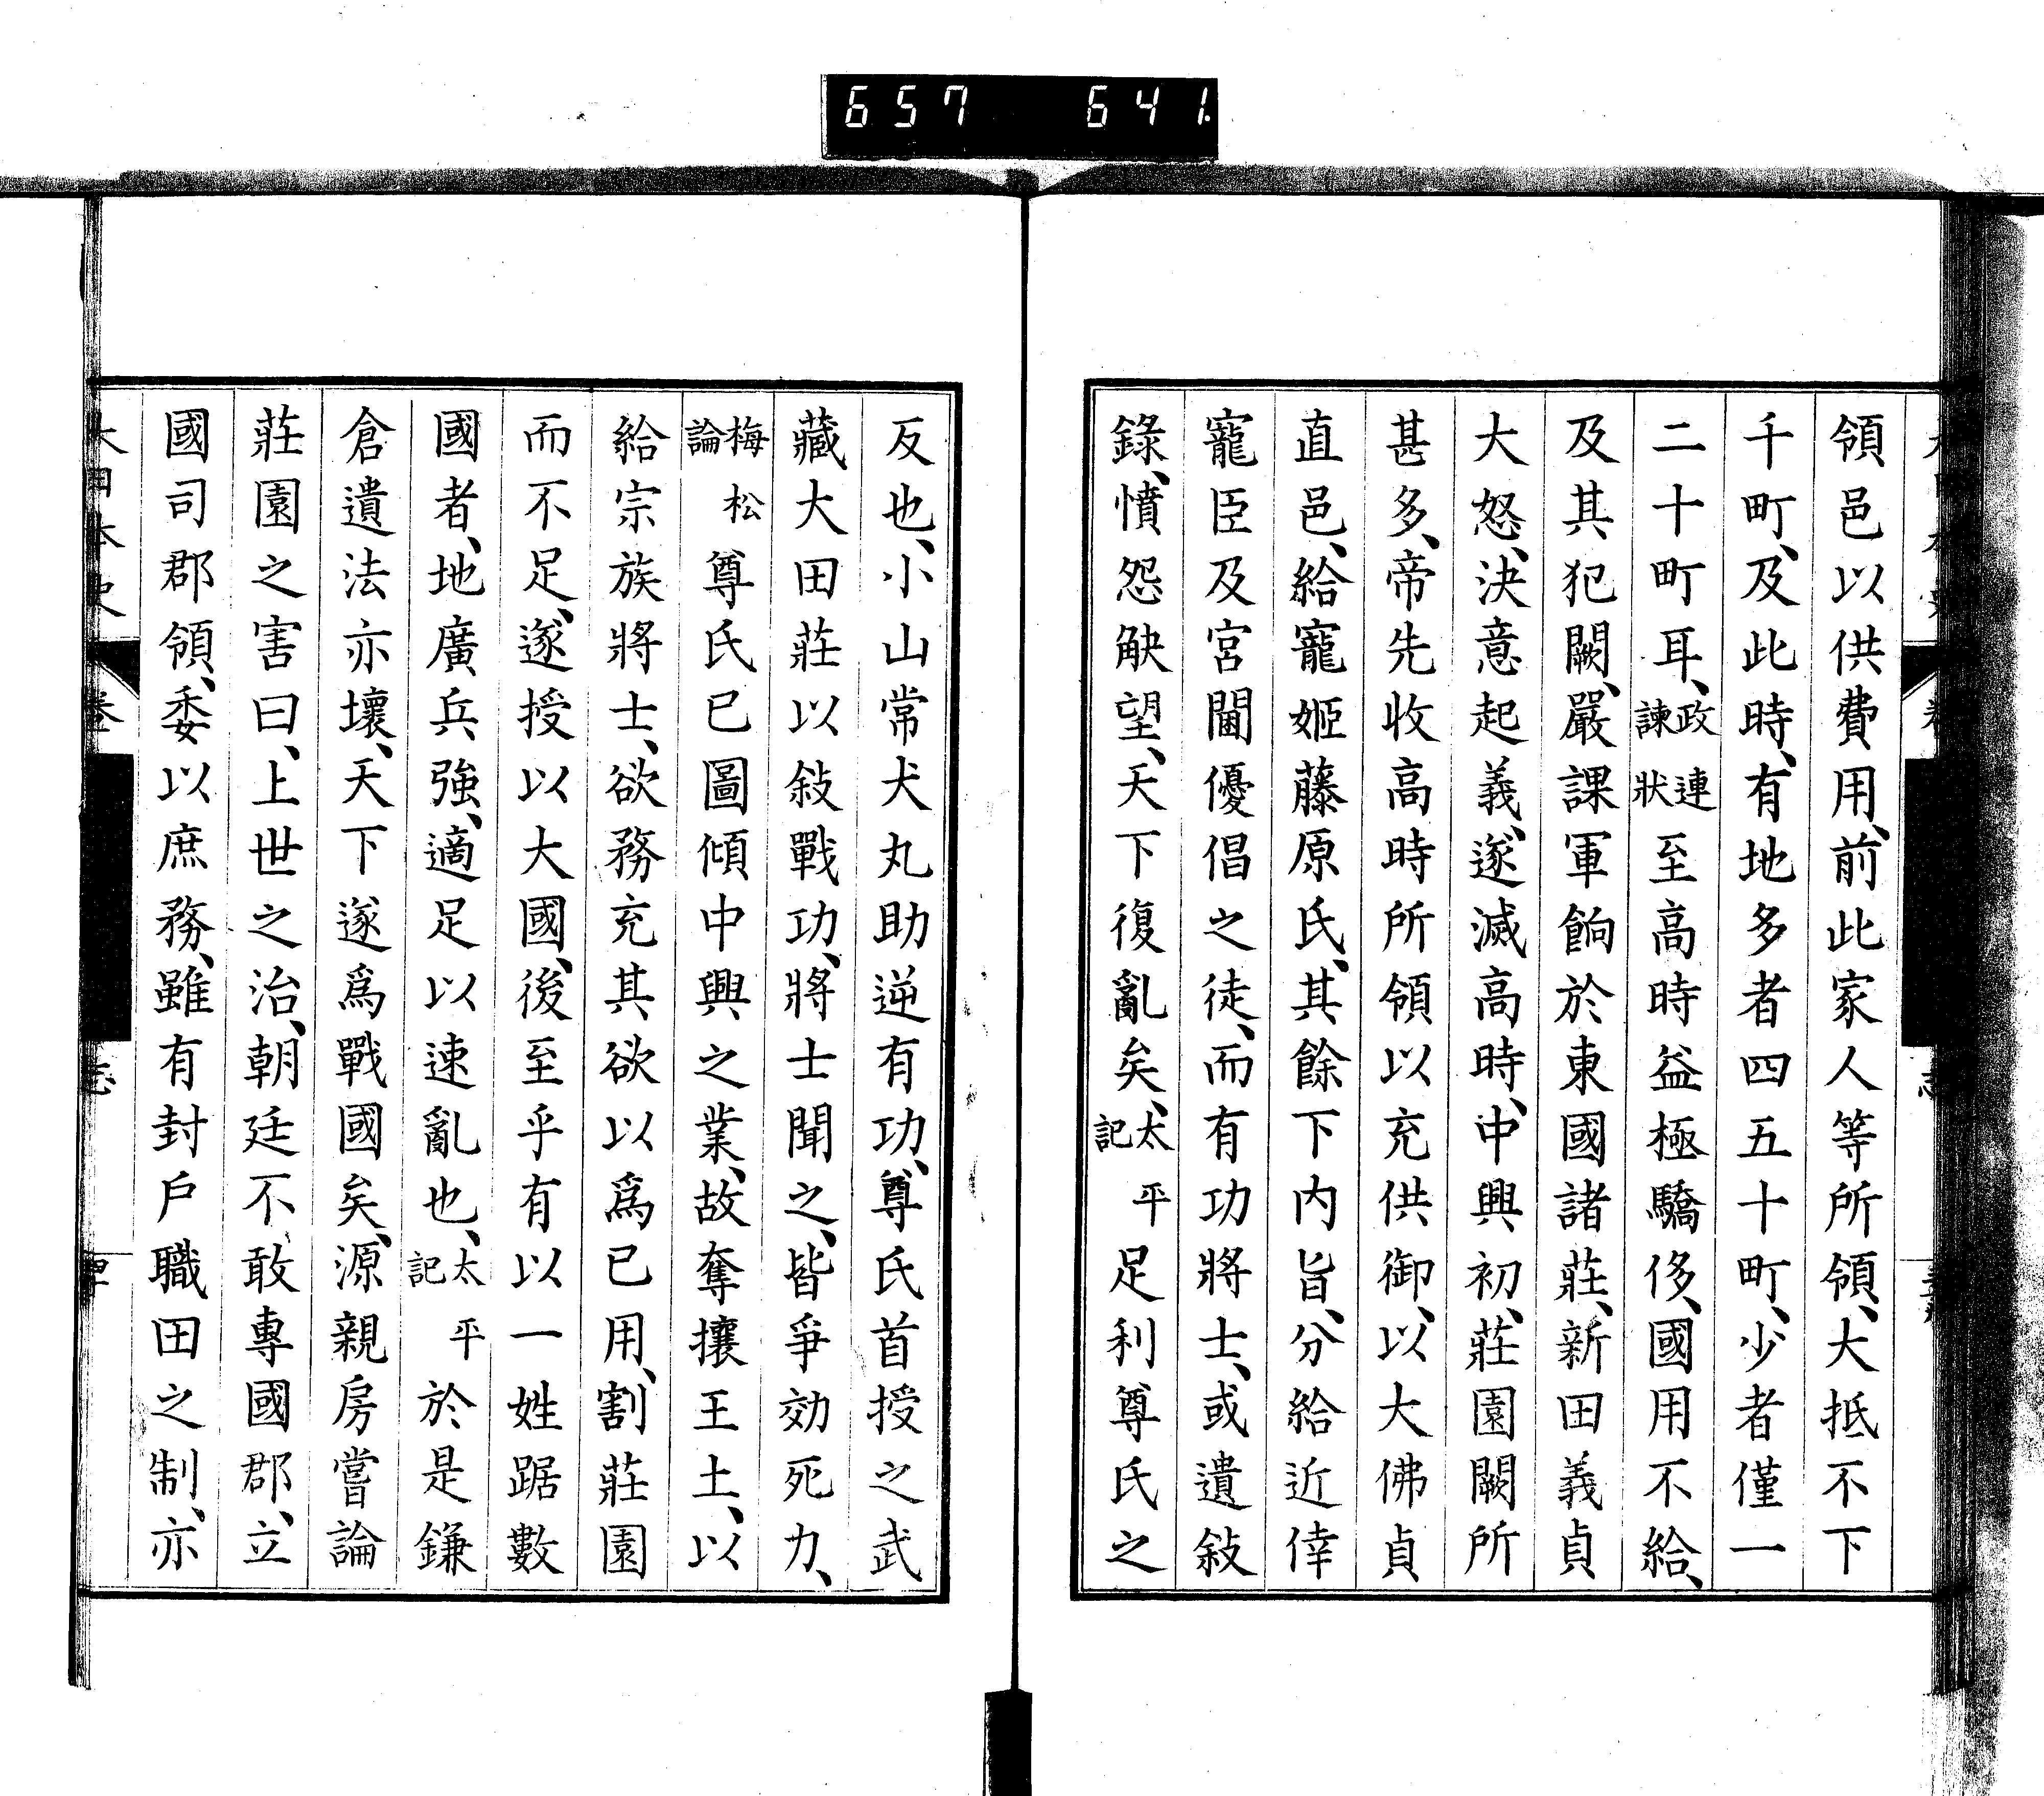 657 641.
領邑以供費用、前此家人等所領、大抵不下
千町、及此時、有地多者四五十町、少者僅一
二十町耳、政連諫狀至高時益極驕侈、國用不給、
及其犯闕、嚴課軍餉於東國諸莊、新田義貞
大怒、決意起義、遂滅高時、中興初、莊園闕所
甚多、帝先收高時所領以充供御、以大佛貞
直邑、給寵姬藤原氏、其餘下内旨、分給近倖
寵臣及宮闈優倡之徒、而有功將士、或遺敍
錄、憤怨觖望、天下復亂矣、太平記足利尊氏之
反也、小山常犬丸助逆有功、尊氏首授之武
藏大田莊以敍戰功、將士聞之、皆爭効死力、
梅松論尊氏已圖傾中興之業、故奪攘王土、以
給宗族將士、欲務充其欲以爲已用、割莊園
而不足、遂授以大國、後至乎有以一姓踞數
國者、地廣兵強、適足以速亂也、太平記於是鎌
倉遺法亦壞、天下遂爲戰國矣、源親房嘗論
莊園之害曰、上世之治、朝廷不敢專國郡、立
國司郡領、委以庶務、雖有封戶職田之制、亦